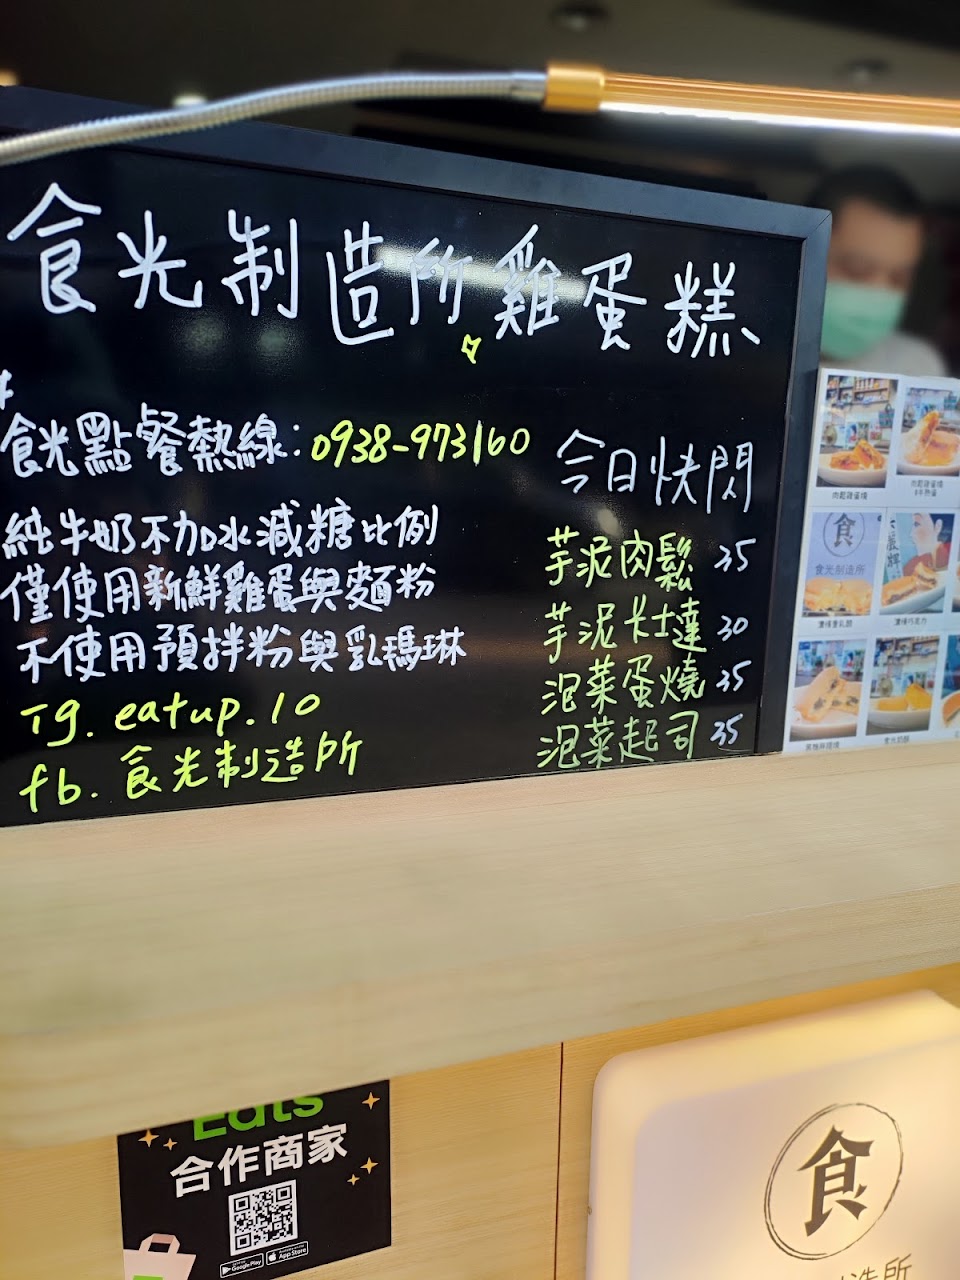 食光制造所雞蛋糕
食光點餐熱線：0938-973160
純牛奶不加水減糖比例
僅使用新鮮雞蛋與麵粉
不使用預拌粉與乳瑪琳
Ig. eatup.10
fb. 食光制造所
今日快閃
芋泥肉鬆 35
芋泥卡士達 30
泡菜蛋燒 35
泡菜起司 35
肉鬆雞蛋燒
食
食光制造所
Eats
合作商家
Google Play
App Store
食
造所